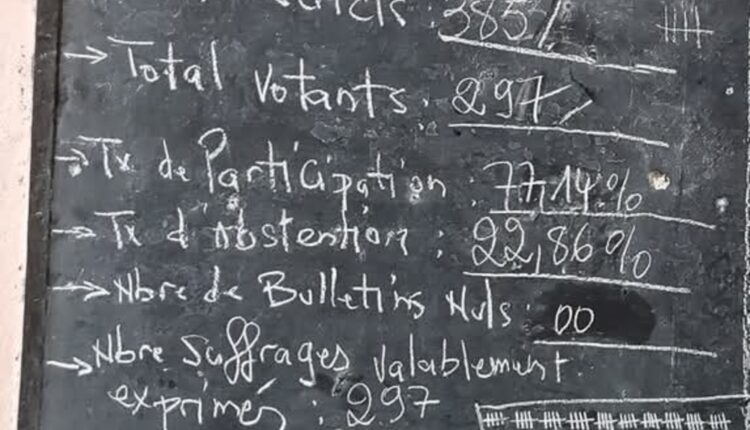 385/
→ Total votants : 297/
→ Tx de Participation : 77,14%
→ Tx d'Abstention : 22,86%
→ Nbre de Bulletins Nuls : 00
→ Nbre Suffrages Valablement
exprimés : 297